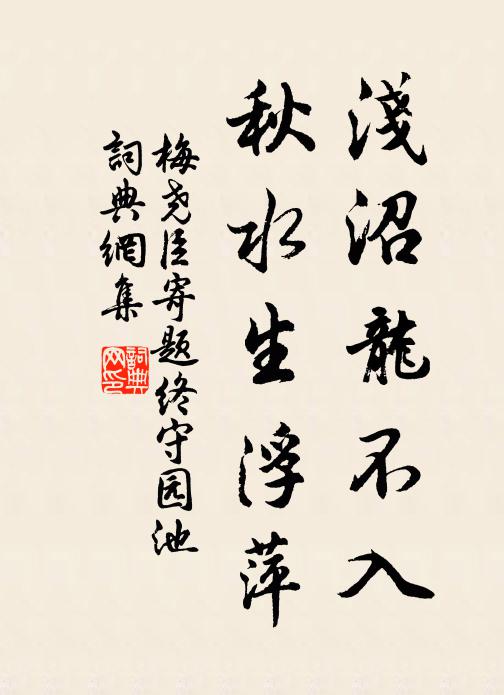 淺沼龍不入
秋水生浮萍
梅尧臣寄题终守园池
詞典網集
詞典网印